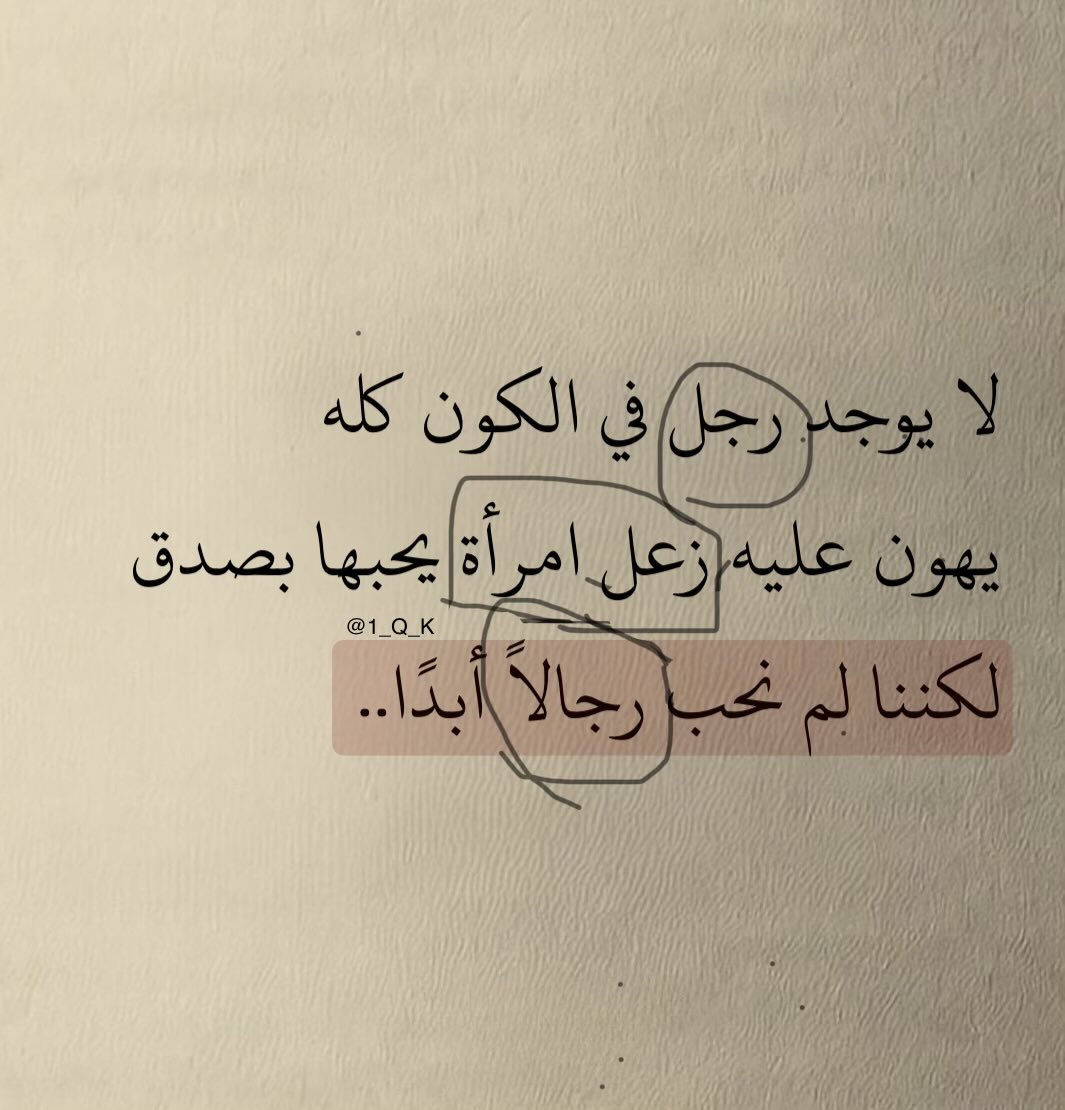 لا يوجد رجل في الكون كله
يهون عليه زعل امرأة يحبها بصدق
@1_Q_K
لكننا لم نحب رجالاً أبدًا..